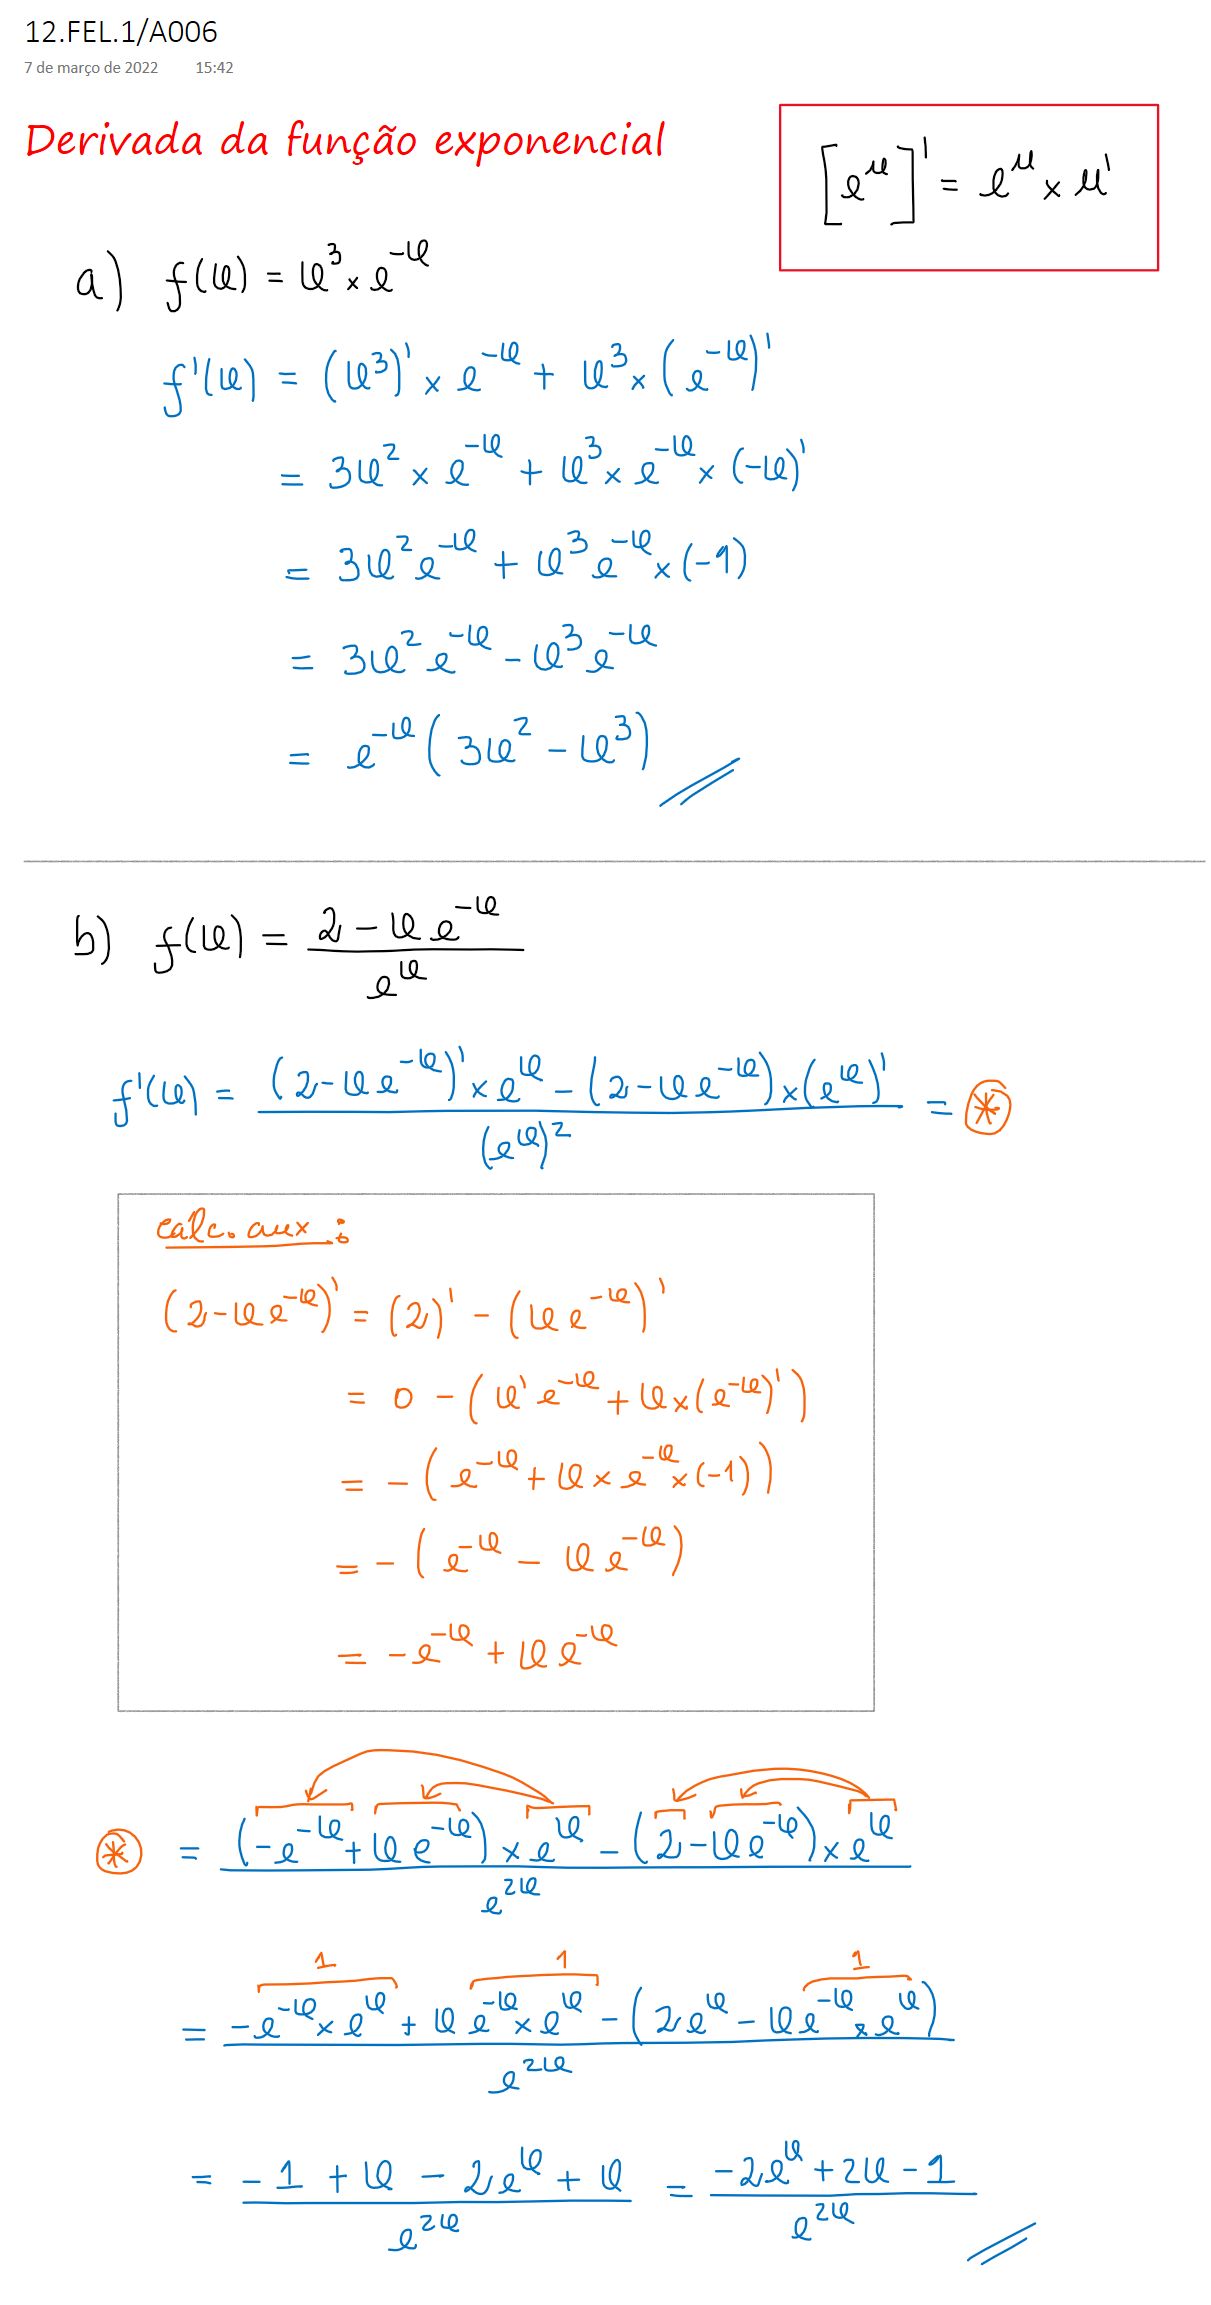 12.FEL.1/A006
7 de março de 2022 15:42
Derivada da função exponencial
[e^u]' = e^u × u'
a) f(x) = x³ × e^(-x)
f'(x) = (x³)' × e^(-x) + x³ × (e^(-x))'
= 3x² × e^(-x) + x³ × e^(-x) × (-x)'
= 3x² e^(-x) + x³ e^(-x) × (-1)
= 3x² e^(-x) - x³ e^(-x)
= e^(-x) (3x² - x³)
b) f(x) = (2 - x e^(-x)) / e^x
f'(x) = ((2 - x e^(-x))' × e^x - (2 - x e^(-x)) × (e^x)') / (e^x)² = ⊛
calc. aux.:
(2 - x e^(-x))' = (2)' - (x e^(-x))'
= 0 - (x' e^(-x) + x × (e^(-x))')
= - (e^(-x) + x × e^(-x) × (-1))
= - (e^(-x) - x e^(-x))
= -e^(-x) + x e^(-x)
⊛ = ((-e^(-x) + x e^(-x)) × e^x - (2 - x e^(-x)) × e^x) / e^(2x)
1 1 1
= (-e^(-x) × e^x + x e^(-x) × e^x - (2e^x - x e^(-x) × e^x)) / e^(2x)
= (-1 + x - 2e^x + x) / e^(2x) = (-2e^x + 2x - 1) / e^(2x)